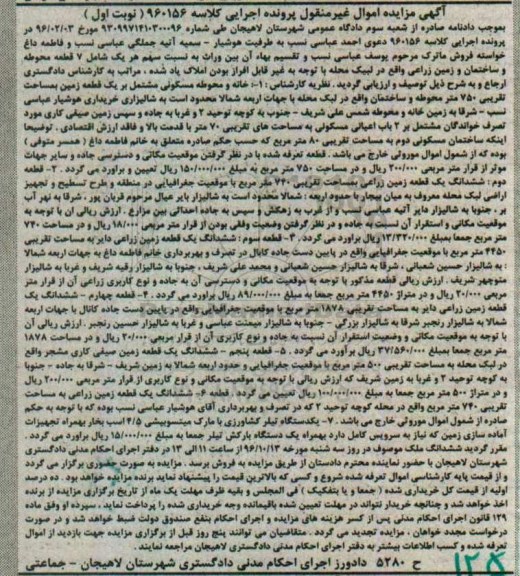 آگهی مزایده اموال غیرمنقول پرونده اجرایی کلاسه ۹۶۰۱۵۶ ( نوبت اول )
بموجب دادنامه صادره از شعبه سوم دادگاه عمومی شهرستان لاهیجان طی شماره ۹۳۰۹۹۷۱۴۱۳۰۰۰۹۶ مورخ ۹۶/۰۲/۰۳ در
پرونده اجرایی کلاسه ۹۶۰۱۵۶ دعوی احمد عباسی نسب به طرفیت هوشیار - سمیه آتیه جملگی عباسی نسب و فاطمه داغ
خواسته فروش ماترک مرحوم یوسف عباسی نسب و تقسیم بهاء آن بین وراث به نسبت سهم هر یک شامل ۷ قطعه محوطه
و ساختمان و زمین زراعی واقع در لبیک محله با توجه به غیر قابل افراز بودن املاک یاد شده ، مراتب به کارشناس دادگستری
ارجاع و به شرح ذیل توصیف و ارزیابی گردید . نظریه کارشناس : ۱- خانه و محوطه مسکونی مشتمل بر یک قطعه زمین بمساحت
تقریبی ۷۵۰ متر محوطه و ساختمان واقع در لبک محله با جهات اربعه شمالا محدود است به شالیزاری خریداری هوشیار عباسی
نسب - شرقا به زمین خانه و محوطه شمس علی شریف - جنوب به کوچه توحید ۲ و غربا به جاده و سپس زمین صیفی کاری مورد
تصرف خواندگان مشتمل بر ۲ باب اعیانی مسکونی به مساحت های تقریبی ۷۰ متر با قدمت بالا و فاقد ارزش اقتصادی . توضیحا
اینکه ساختمان مسکونی دوم به مساحت تقریبی ۸۰ متر مربع که حسب حکم صادره متعلق به خانم فاطمه داغ ( همسر متوفی )
بوده که از شمول اموال موروثی خارج می باشد . قطعه تعرفه شده با در نظر گرفتن موقعیت مکانی و دسترسی جاده و سایر جهات
موثر از قرار متر مربعی ۲۰۰/۰۰۰ ریال و در مساحت ۷۵۰ متر مربع به مبلغ ۱۵۰/۰۰۰/۰۰۰ ریال تعیین و برآورد می گردد . ۲- قطعه
دوم : ششدانگ یک قطعه زمین زراعی به مساحت تقریبی ۷۴۰ متر مربع با موقعیت جغرافیایی در منطقه و طرح تسطیح و تجهیز
اراضی لبک محله معروف به میان بیجار با حدود اربعه : شمالا محدود است به شالیزار بایر عیال مرحوم قربان پور . شرقا به نهر آب
بر ، جنوبا به شالیزار دایر آتیه عباسی نسب و از غرب به زهکش و سپس به جاده احداثی بین مزارع . ارزش ریالی ان با توجه به
موقعیت مکانی و استقرار آن نسبت به جاده و در نظر گرفتن وضعیت وقفی بودن از قرار متر مربعی ۱۸/۰۰۰ ریال و در مساحت ۷۴۰
متر مربع جمعا بمبلغ ۱۳/۳۲۰/۰۰۰ ریال برآورد می گردد . ۳- قطعه سوم : ششدانگ یک قطعه زمین زراعی دایر به مساحت تقریبی
۴۴۵۰ متر مربع با موقعیت جغرافیایی واقع در پایین دست جاده کانال در تصرف و بهربرداری خانم فاطمه داغ به جهات اربعه شمالا
: به شالیزار حسین شعبانی . شرقا به شالیزار حسین شعبانی و محمد علی شریف ، جنوبا به شالیزار رقیه شریف و غربا به شالیزار
منوچهر شریف . ارزش ریالی قطعه مذکور با توجه به موقعیت مکانی و دسترسی آن به جاده و نوع کاربری زراعی آن از قرار متر
مربعی ۲۰/۰۰۰ ریال و در متراژ ۴۴۵۰ متر مربع جمعا به مبلغ ۸۹/۰۰۰/۰۰۰ ریال برآورد می گردد . ۴- قطعه چهارم - ششدانگ یک
قطعه زمین زراعی دایر به مساحت تقریبی ۱۸۷۸ متر مربع با موقعیت جغرافیایی واقع در پایین دست جاده کانال با جهات اربعه
شمالا به شالیزار رنجبر شرقا به شالیزار بزرگی - جنوبا به شالیزار میمنت عباسی و غربا به شالیزار حسین رنجبر . ارزش ریالی آن
با توجه به موقعیت مکانی و وضعیت استقرار آن نسبت به جاده و نوع کاربری آن از قرار مربعی ۲۰/۰۰۰ ریال و در مساحت ۱۸۷۸
متر مربع جمعا بمبلغ ۳۷/۵۶۰/۰۰۰ ریال برآورد می گردد . ۵- قطعه پنجم - ششدانگ یک قطعه زمین صیفی کاری مشجر واقع
در لبک محله به مساحت تقریبی ۵۰۰ متر مربع با موقعیت جغرافیایی و حدود اربعه شمالا به زمین شریف - شرقا به جاده - جنوبا
به کوچه توحید ۲ و غربا به زمین شریف که ارزش ریالی با توجه به موقعیت مکانی و نوع کاربری از قرار متر مربعی ۲۰۰/۰۰۰ ریال
و در متراژ ۵۰۰ متر مربع جمعا به مبلغ ۱۰۰/۰۰۰/۰۰۰ ریال تعیین می گردد . قطعه ۶- ششدانگ یک قطعه زمین زراعی به مساحت
تقریبی ۷۴۰ متر مربع واقع در محله کوچه توحید ۲ که در تصرف و بهربرداری آقای هوشیار عباسی نسب بوده که با توجه به حکم
صادره از شمول اموال موروثی خارج می باشد . ۷- یکدستگاه تیلر کشاورزی با مارک میتسوبیشی ۴/۵ اسب بخار بهمراه تجهیزات
آماده سازی زمین که نیاز به سرویس کامل دارد بهمراه یک دستگاه بارکش تیلر جمعا به مبلغ ۱۵/۰۰۰/۰۰۰ ریال برآورد می گردد .
مقرر گردید ششدانگ ملک موصوف در روز سه شنبه مورخه ۹۶/۱۰/۱۳ از ساعت ۱۱ الی ۱۳ در دفتر اجرای احکام مدنی دادگستری
شهرستان لاهیجان با حضور نماینده محترم دادستان از طریق مزایده به فروش برسد . مزایده به صورت حضوری برگزار می گردد
و از قیمت پایه کارشناسی اموال تعرفه شده شروع و کسی که بالاترین قیمت را پیشنهاد نماید برنده مزایده خواهد بود . ده درصد
اولیه از قیمت کل خریداری شده ( جمعا و یا بتفکیک ) فی المجلس و بقیه ظرف مهلت یک ماه از تاریخ برگزاری مزایده از برنده
اخذ خواهد شد و چنانچه خریدار نتواند در مهلت تعیین شده باقیمانده وجه خریداری شده را پرداخت نماید ، سپرده او وفق ماده
۱۲۹ قانون اجرای احکام مدنی پس از کسر هزینه های مزایده و اجرای احکام بنفع صندوق دولت ضبط خواهد شد و در صورت
درخواست مجدد خواهان ، مزایده تجدید می گردد . متقاضیان می توانند پنج روز قبل از برگزاری مزایده جهت بازدید از اموال
تعرفه شده و کسب اطلاعات بیشتر به دفتر اجرای احکام مدنی دادگستری لاهیجان مراجعه نمایند .
ح ۵۲۸۰ دادورز اجرای احکام مدنی دادگستری شهرستان لاهیجان - جماعتی
۱۲۵